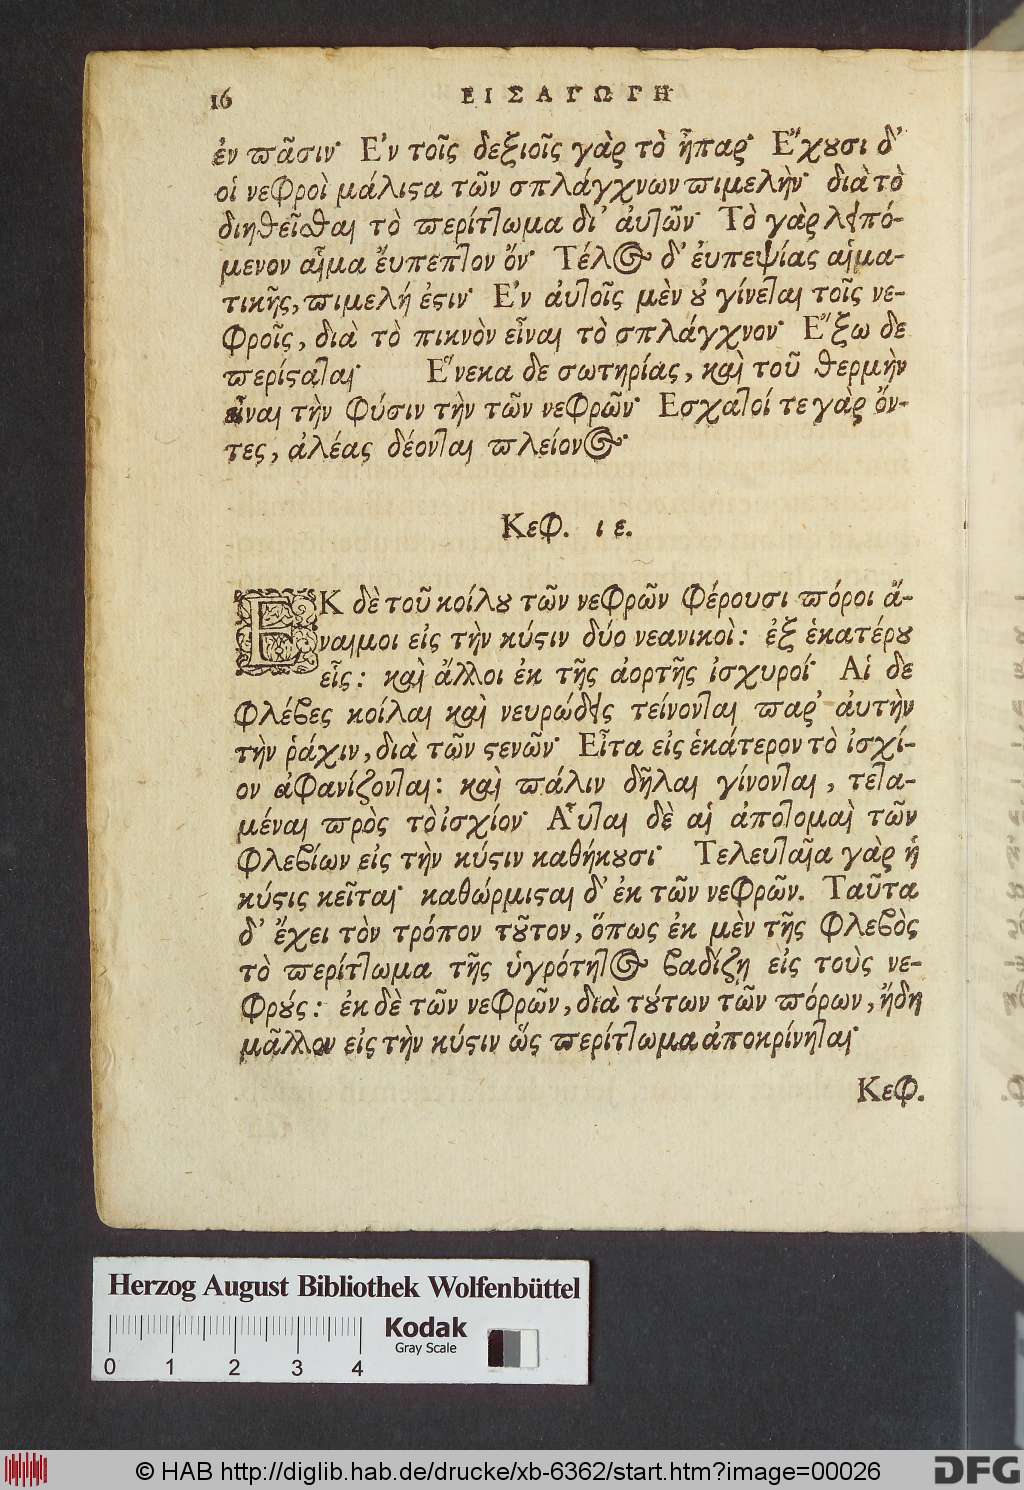 16 ΕΙΣΑΓΩΓΗ
ἐν πᾶσιν· Ἐν τοῖς δεξιοῖς γὰρ τὸ ἧπαρ· Ἔχουσι δ’
οἱ νεφροὶ μάλιστα τῶν σπλάγχνων πιμελὴν· διὰ τὸ
διηθεῖσθαι τὸ περίττωμα δι’ ἀυτῶν· Τὸ γὰρ λειπό-
μενον αἷμα ἔυπεπτον ὄν· Τέλος δ’ ἐυπεψίας αἱμα-
τικῆς, πιμελή ἐστιν· Ἐν ἀυτοῖς μὲν οὐ γίνεται τοῖς νε-
φροῖς, διὰ τὸ πικνὸν εἶναι τὸ σπλάγχνον· Ἔξω δε
περίσταται· Ἕνεκα δε σωτηρίας, καὶ τοῦ θερμὴν
εἶναι τὴν φύσιν τὴν τῶν νεφρῶν· Εσχατοί τε γὰρ ὄν-
τες, ἀλέας δέονται πλείονος·
Κεφ. ιε.
ΕΚ δὲ τοῦ κοίλου τῶν νεφρῶν φέρουσι πόροι ἄ-
ναιμοι εἰς τὴν κύστιν δύο νεανικοὶ: ἐξ ἑκατέρου
εἷς: καὶ ἄλλοι ἐκ τῆς ἀορτῆς ἰσχυροί· Αἱ δε
φλέβες κοίλαι καὶ νευρώδεις τείνονται παρ’ ἀυτὴν
τὴν ῥάχιν, διὰ τῶν στενῶν· Εἶτα εἰς ἑκάτερον τὸ ἰσχί-
ον ἀφανίζονται: καὶ πάλιν δῆλαι γίνονται, τετα-
μέναι πρὸς τὸ ἰσχίον· Αὗται δὲ αἱ ἀποτομαὶ τῶν
φλεβίων εἰς τὴν κύστιν καθήκουσι· Τελευταῖα γὰρ ἡ
κύστις κεῖται· καθώρμισται δ’ ἐκ τῶν νεφρῶν. Ταῦτα
δ’ ἔχει τὸν τρόπον τοῦτον, ὅπως ἐκ μὲν τῆς φλεβὸς
τὸ περίττωμα τῆς ὑγρότητος βαδίζῃ εἰς τοὺς νε-
φρούς: ἐκ δὲ τῶν νεφρῶν, διὰ τούτων τῶν πόρων, ἤδη
μᾶλλον εἰς τὴν κύστιν ὥς περίττωμα ἀποκρίνηται·
Κεφ.
Herzog August Bibliothek Wolfenbüttel
Kodak
Gray Scale
0 1 2 3 4
© HAB http://diglib.hab.de/drucke/xb-6362/start.htm?image=00026
DFG